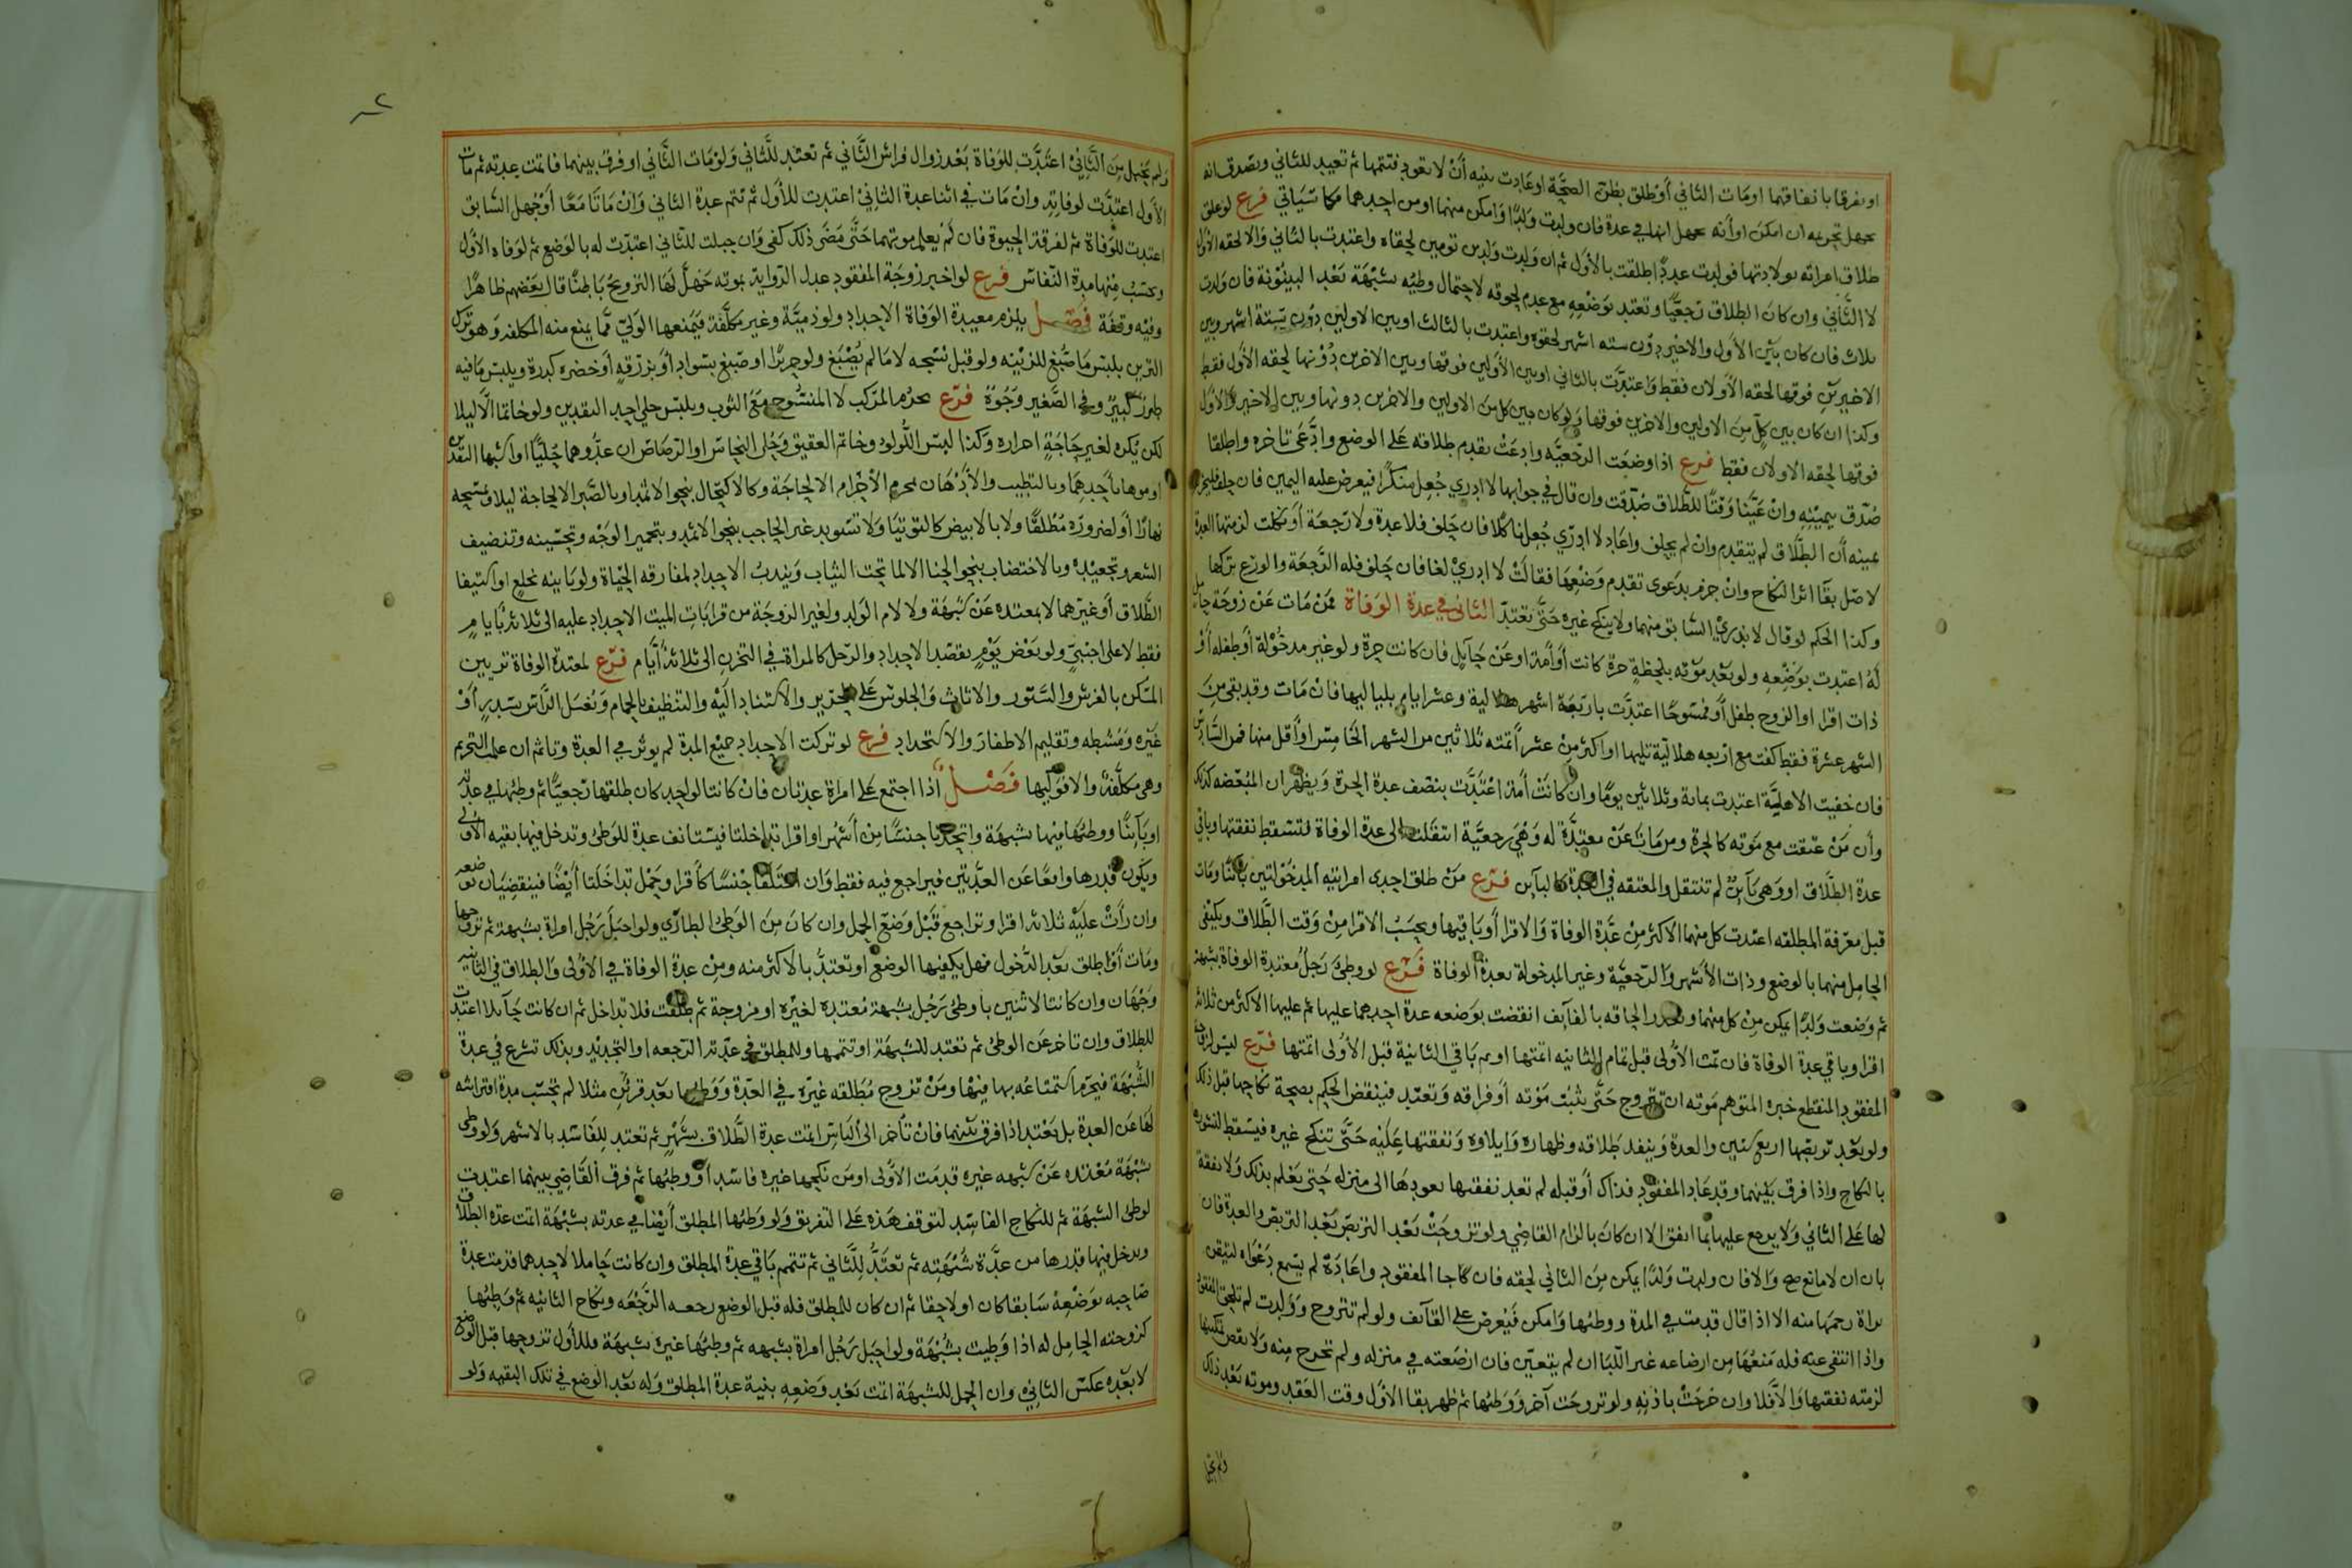 او بفرقا بانفاقهما او مات الثاني أو طلق بظن الصحة او عادت بنيه أنْ لا تعود فتتمها ثم تعتد للثاني وتصدق انه
طلاق امراته بولادتها فولدت ولدا طلقت بالأول ثم ان ولدت ولدين تومين لحقاه واعتدت بالثاني والا لحقه الأول
لا الثَّاني وان كان الطلاق رجعيًّا وتعتد بوَضْعِهِ مع عدم لحوقه لاحتمال وطيه بشبْهَة بَعْد البينُونة فان ولدت
ثلاث فان كان بَيْن الأول والاخير دون سته اشهر لحقوه واعتدت بالثالث او بين الاولين دون ستة اشهر وبين
الاخيرين فوقها لحقه الأولان فقط واعتدَّت بالثاني او بين الأولين فوقها وبين الاخرين دُوْنها لحقه الأول فقط
وكذا ان كان بين كلٍّ مِنَ الاولين والاخرين فوقها ولو كان بين كل من الاولين والاخرين دونها وبين الاخير والأول
فوقها لحقه الاولان فقط فرع اذا وضعَت الرجعيَّه وادعَتْ تقدم طلاقه عَلى الوضع وادَّعَى تاخره واطلقا
صُدِّق بيمينِهِ وانْ عَيَّنَا وَقْتًا للطَّلاق صُدِّقت وان قال في جوابها لا ادري جُعِل منكرًا فيعرض عليه اليمين فان حلف
يمينه أن الطَّلاق لم يتقدم وان لم يحلف واعاد لا ادري جُعِل ناكلًا فان حَلف فلا عدة ولا رَجعَة أو نكلت لزمتها العدة
لاصل بقَا اثر النكاح وانْ جزم بدَعوى تقدم وَضْعِهَا فقالَتْ لا ادريْ لغا فان حَلَف فله الرَّجعَة والورَع تركها
وكذا الحكم لو قال لا ندريْ السَّابق منهما ولا ينكح غيره حَتَّى تعتدّ الثاني في عدة الوَفاة فمن مَات عَنْ زوجَة حامل
لهُ اعتدت بوَضْعِهِ ولو بَعْد موته بلحظةٍ حرة كانت أوَ أمة او عَنْ حَآيلٍ فان كانت حرة ولو غير مدخُوْلة أو طفله أَوْ
ذات اقرا او الزوج طفل أو ممْسوحًا اعتدَّت باربَعَة اشهر هلالية وعشرا يام بلياليها فانْ مَات وقد بقي مِنَ
الشهر عشرة فقط كفته مع اربعه هلاليّة تليها او اكثر مِنْ عشر أتمته ثلاثين من الشهر الخَامِس او أقل منها فمن السَّادس
فان خفيت الاهليَّة اعتدت بماية وثلاثين يومًا وان كانَتْ أمَة اعْتدَّت بنصف عدة الحرة وَيظهر ان المبعَّضه كذلك
وأن مَنْ عتقت مع مَوته كالحرة ومن مَات عَنْ معتدَّة له وَهْيَ رجعيَّة انتقلت الى عدة الوفاة فتسْقط نفقتها وباقي
عدة الطَّلاق او وَهي بَآيِنٌ لم تنتقل والمعتقه في العدة كالبآين فرْع مَنْ طلق احدى امراتيه المدخُولتين بآئنًا ومَات
قبل معْرفة المطلقه اعتدت كل منهما الاكثر مِنْ عدَّة الوفاة وَالاقرا أوَ باقيها ويحسَبُ الاقرا مِنْ وَقت الطَّلاق ويكْفي
الحامِل منهما بالوضع وذات الأشهر وَالرّجعيَّة وغير المدخولة بعدة الوفاة فَرْع لو وطئَ رَجلٌ معتدة الوفاة بشبهة
ثم وَضعت ولدًا يمكن مِنْ كل منهما وتعذر الحاقه بالقآيف انقضت بوَضعه عدة احدهما عليها ثم عليها الاكثر من ثلاثة
اقرا وباقي عدة الوفاة فان تمَّت الأُولى قبل تمام الثانيه اتمّتها او تم بَاقي الثانية قبل الأُولى اتمّتها فَرْع ليس لزوجة
المفقود المنقطع خبره المتوهم مَوته ان تتزوج حَتَّى يثبُت مَوْته أوَ فراقه وَتعتد فينْقض الحكم بصحة نكاحها قبل ذلك
ولو بعْد تربصها اربع سنين والعدة وَينفد طلاقه وظهاره وَايلاوه وَنفقتها عَلَيْه حَتَّى تنكح غيره فيسْقط لنشوزها
بالنكاح واذا فرق بَيْنهما وقد عَاد المفقود فذاك أو قبله لم تعد نفقتها بعودها الى منزله حَتى يَعْلم بذلك وَلا نفقة
لها عَلى الثاني وَلا يرجع عليها بما انفق الا ان كانَ بالزام القاضي ولو تزوجَتْ بَعْد التربصْ بعْد التربص والعدة فان
بان ان لا مانع صح وَالا فان ولدت وَلدًا يمكن مِنَ الثاني لحقه فان جَا المفقود وادّعَاه لم يسمع دَعْوَاه لتيقن
براة رحمها منه الا اذا قال قدمت في المدة ووطئها وَامكن فَيُعْرض على القآئف ولو لم تتزوج وَولدت لم تلحق المفقود
واذا انتفى عنه فله مَنعُهَا مِن ارضاعه غير اللّبَا ان لم يتعيّن فان ارضَعته في منزله ولم تخرج مِنه وَلا نقص تمكينها
لزمته نفقتها وَالاَّ فلا وان خرجَتْ باذنِه ولو تزوجَت آخر وَوطئها ثم ظهر بقا الأول وقت العَقد وموته بَعْد ذلك
ولم يحبل
ولم تحبل مِنَ الثَّانيْ اعتدَّت للوَفاة بَعْد زوال فراش الثَّاني ثم تعتد للثَّاني وَلوْ مَات الثَّاني او فرق بينهما فاتمَّت عدته ثم مات
الأول اعتدَّت لوفاته وانْ مَات في اثنا عدة الثانِيْ اعتدت للأول ثم تتم عدة الثاني وَانْ مَاتَا مَعًا أوْ جُهل السَّابق
اعتدت للوَفاة ثم لفرقة الحيوة فان لمْ يعلم موتهما حَتَّى مَضَى ذلك كفى وَان حبلت للثَّاني اعتدّت له بالوَضع ثم لوَفاة الأول
وتحسَبُ مِنْها مدة النّفاس فرع لو اخبر زوجَة المفقود عدل الرّواية بموته حَلَّ لَهَا التزويجُ بَاطِنًا قال بَعْضهم ظاهرًا
وفيْه وقفة فصْل يلزم معتدة الوَفاة الاحداد ولو ذميَّة وغير مكلَّفة فيمْنعها الوَليّ ممَّا يمنع منه المكلفه وَهو ترك
التزين بلبْس مَا صُبغ للزيْنه ولو قبل نسْجه لا مَا لم يُصْبَغ ولو حريرًا او صُبغ بسَواد أوَ بزرقةٍ أوَ خضره كدرة ويلبَس مَا فيه
طِرَازٌ كبيرٌ وفي الصَّغير وَجُوهٌ فرْع يحرُم المركب لا المنسُوج معَ الثوب ويلبس حلي احد النقدين ولو خاتما الَّا ليلا
لكن يُكره لغير حَاجَةٍ احرازه وَكذا لبس اللُّولو وخاتم العقيق وَحُلي النحاس او الرّصَاص ان عدُّوهما حُليًّا او اشبها النقدين
او موها باحدهمَا وبالتطيب والأدْهَان كمحرم الأحْرَام الا لحاجَة وكالاكتحال بنحو الاثمد او بالصَّبر الا لحاجة ليلا وتمسَحه
نهارًا أو لضرورَه مُطْلقًا ولا بالابيض كالتوتيَا وَلا تسْويد غير الحاجب بنحو الاثمد وبتحمير الوَجْه وتحسّينه وتنضيف
الشعر وتجعيده وبالاختضاب بنحو الحنا الا لما تحت الثياب وَيندبُ الاحداد لمفارقه الحيَاة ولو بَاينه بخلعٍ او استيفا
الطَّلاق أوَ غيرهما لا بمعتده عَنْ شبهَة ولا لام الوَلد ولغير الزوجَة من قرابَات الميت الاحداد عليه الى ثلاثةُ أيامٍ
فقط لا على اجنبيٍّ ولو بَعْض يَوْمٍ بقصْد الاحداد والرَّجل كالمراة في التحزن الى ثلاثةُ أيَّام فرّع لمعتدة الوفاة تزيين
المسْكن بالفرش والسُّتور والاثاث وَالجلوس عَلى الحرير والاستناد اليْه والتنظيف بالحمام وَبغسْل الرَّأس بسدرٍ أوَ
غيْره وَمُشطه وتقليم الاظفار والاستحداد فرع لو تركت الاحداد جميْع المدة لم يوثر في العدة وتاثم ان علمت التحريم
وهي مكلَّفةٌ والا فوليها فَصْلٌ اذا اجتمع عَلى امراة عدتان فانْ كانتا لواحد كان طلقها رَجعيًّا ثم وطئها في عدته
او بَآئنًا ووطئها فيها بشبهَة واتحدتا جنسًا مِنْ أشهُر او اقرا تداخلتا فيسْتانف عدة للوَطئ وتدخل فيها بقيه الأولى
ويكون قدرها وَاقعًا عَن العدَّتيْن فيراجع فيه فقط وَان اختلفا جنْسًا كأقرا وحَمْل تداخَلتا أيْضًا فينقضِيَان بوضعه
وان رأتْ عليْه ثلاثة اقرا وتراجع قَبْل وَضْع الحمل وان كانَ مِنَ الوَطئِ الطاري ولو احبَلَ رَجُل امراة بشبهة ثم تزوجها
ومَات أوَ طلق بعْد الدُّخول فهل يكفيْها الوضعُ او تعتدُّ بالاكثر منه ومِنْ عدة الوَفاة في الأُوْلى وَالطلاق في الثانية
وَجْهَان وان كانتا لاثنين بان وطئَ رَجُل بشبهة مُعتده لغيْره او مزوجة ثم طلّقت فلا تداخل ثم ان كانت حَآئلا اعتدت
للطلاق وان تاخر عَن الوطئ ثم تعتد للشبهَة او تتمها وللمطلق في عدّته الرّجعه او التجديد وبذلك تشرع في عدة
الشُّبْهَة فيَحْرُم استمتاعُه بها فيْها ومَنْ تزوج مُطَلقته غيْره في العدَّة وَوَطئها بَعْد قرْئَيْن مثلا لم تحْسَب مدة افتراشه
لهَا عَن العدة بل تَعْتد اذا فرق بيْنهما فانْ تأخر الى الْيَاس اتمت عدة الطَّلاق بشَهْرٍ ثم تعتد للفَاسد بالاشهر وَلو وطئ
بشبْهَة مُعْتده عَنْ شبهه غيره قدمَت الأُولى او مَن نكحها غيره فاسدا أوَ وطئها ثم فرق القَاضِي بينهما اعتدت
لوطئ الشبهَة ثم للنكاح الفاسد لتوقف هَذه عَلى التفريق وَلو وَطئها المطلق أيْضا في عدته بشبْهَة اتمت عدة الطلاق
ويدخل فيها قدرها من عدَّة شُبْهَته ثم تعْتَدُّ لِلثَّاني ثم تتمم بَاقي عدة المطلق وان كانت حَاملا لاحدهما قدمت عدة
صَاحبه بوَضْعِهْ سَابقا كان او لاحقا ثم ان كان للمطلق فله قبل الوضع رجعه الرَّجْعَه ونكاح الثانيه ثم وَطئها
كزوجته الحامِل له اذا وَطِيت بشُبْهَة ولو احبَل رَجُل امراة بشبهه ثم وطئها غيره بشبهَة فللأول تزوجها قبل الوَضع
لا بَعْده عكس الثاني وان الحمل للشبهَة اتمت بَعْد وَضعِه بقية عدة المطلق وَله بَعْد الوَضع في تلك البقيه وَلو